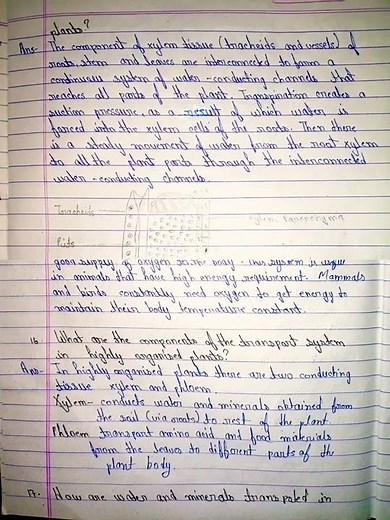 plants?
Ans- The component of xylem tissue (tracheids and vessels) of
roots, stem and leaves are interconnected to form a
continuous system of water-conducting channels that
reaches all parts of the plant. Transpiration creates a
suction pressure, as a result of which water is
forced into the xylem cells of the roots. Then there
is a steady movement of water from the root xylem
to all the plant parts through the interconnected
water-conducting channels.
Tracheids
xylem Parenchyma
Pits
good supply of oxygen to the body. This system is
in animals that have high energy requirement. Mammals
and birds constantly need oxygen to get energy to
maintain their body temperature constant.
16. What are the components of the transport system
in highly organised plants?
Ans- In highly organised plants there are two conducting
tissue xylem and phloem.
Xylem- conducts water and minerals obtained from
the soil (via roots) to rest of the plant.
Phloem transport amino acid and food materials
from the leaves to different parts of the
plant body
17. How are water and minerals in